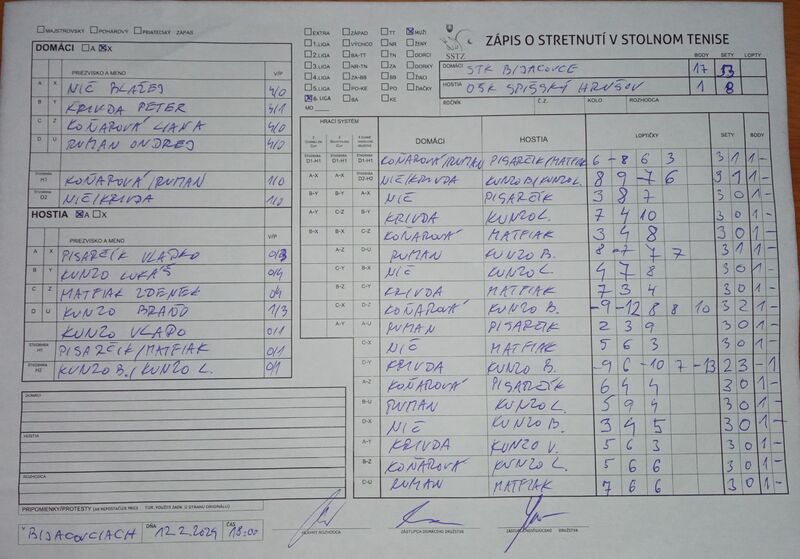 MAJSTROVSKÝ POHAROVÝ PRIATEĽSKÝ ZÁPAS
EXTRA ZÁPAD TT MUŽI
1.LIGA VÝCHOD NR ŽENY
2.LIGA BA-TT TN DORCI
3.LIGA NR-TN ZA DORKY
4.LIGA ZA-BB BB ŽIACI
5.LIGA PO-KE PO ŽIAČKY
6. LIGA BA KE
MO
SSTZ
ZÁPIS O STRETNUTÍ V STOLNOM TENISE
BODY SETY LOPTY
DOMÁCI STK BIJACOVCE 17 53
HOSTIA OŠK SPIŠSKÝ HRHOV 1 8
ROČNÍK Č.Z. KOLO ROZHODCA
DOMÁCI A X
PRIEZVISKO A MENO V/P
A X NIČ BLAŽEJ 4/0
B Y KRIVDA PETER 3/1
C Z KOŇAROVÁ LIANA 4/0
D U RUMAN ONDREJ 4/0
ŠTVORHRA H1 KOŇAROVÁ/RUMAN 1/0
ŠTVORHRA D2 NIČ/KRIVDA 1/0
HOSTIA A X
PRIEZVISKO A MENO V/P
A X PISARČIK VLADKO 0/3
B Y KUNZO LUKÁŠ 0/4
C Z MATFIAK ZDENEK 0/4
D U KUNZO BRAŇO 1/3
KUNZO VLADO 0/1
ŠTVORHRA H1 PISARČIK/MATFIAK 0/1
ŠTVORHRA H2 KUNZO B./KUNZO L. 0/1
HRACÍ SYSTÉM
DOMÁCI HOSTIA LOPTIČKY SETY BODY
ŠTVORHRA D1-H1 ŠTVORHRA D1-H1 ŠTVORHRA D1-H1 KOŇAROVÁ/RUMAN PISARČIK/MATFIAK 6 -8 6 3 3 1 1 -
A-X A-X ŠTVORHRA D2-H2 NIČ/KRIVDA KUNZO B/KUNZO L. 8 9 -7 6 3 1 1 -
B-Y B-Y A-X NIČ PISARČIK 3 8 7 3 0 1 -
A-Y C-Z B-Y KRIVDA KUNZO L. 7 4 10 3 0 1 -
B-X B-X C-Z KOŇAROVÁ MATFIAK 3 4 8 3 0 1 -
A-Z D-U RUMAN KUNZO B. 8 -7 7 7 3 1 1 -
C-Y B-X NIČ KUNZO L. 4 7 8 3 0 1 -
B-Z C-Y KRIVDA MATFIAK 7 3 4 3 0 1 -
C-X D-Z KOŇAROVÁ KUNZO B. -9 -12 8 8 10 3 2 1 -
A-Y A-U RUMAN PISARČIK 2 3 9 3 0 1 -
C-X NIČ MATFIAK 5 6 3 3 0 1 -
D-Y KRIVDA KUNZO B. -9 6 -10 7 -13 2 3 - 1
A-Z KOŇAROVÁ PISARČIK 6 4 4 3 0 1 -
B-U RUMAN KUNZO L. 5 9 4 3 0 1 -
D-X NIČ KUNZO B. 3 4 5 3 0 1 -
A-Y KRIVDA KUNZO V. 5 6 3 3 0 1 -
B-Z KOŇAROVÁ KUNZO L. 5 6 6 3 0 1 -
C-U RUMAN MATFIAK 7 6 6 3 0 1 -
DOMÁCI
HOSTIA
ROZHODCA
PRIPOMIENKY/PROTESTY
V BIJACOVCIACH DŇA 12.2.2024 ČAS 18:00
HLAVNÝ ROZHODCA ZÁSTUPCA DOMÁCEHO DRUŽSTVA